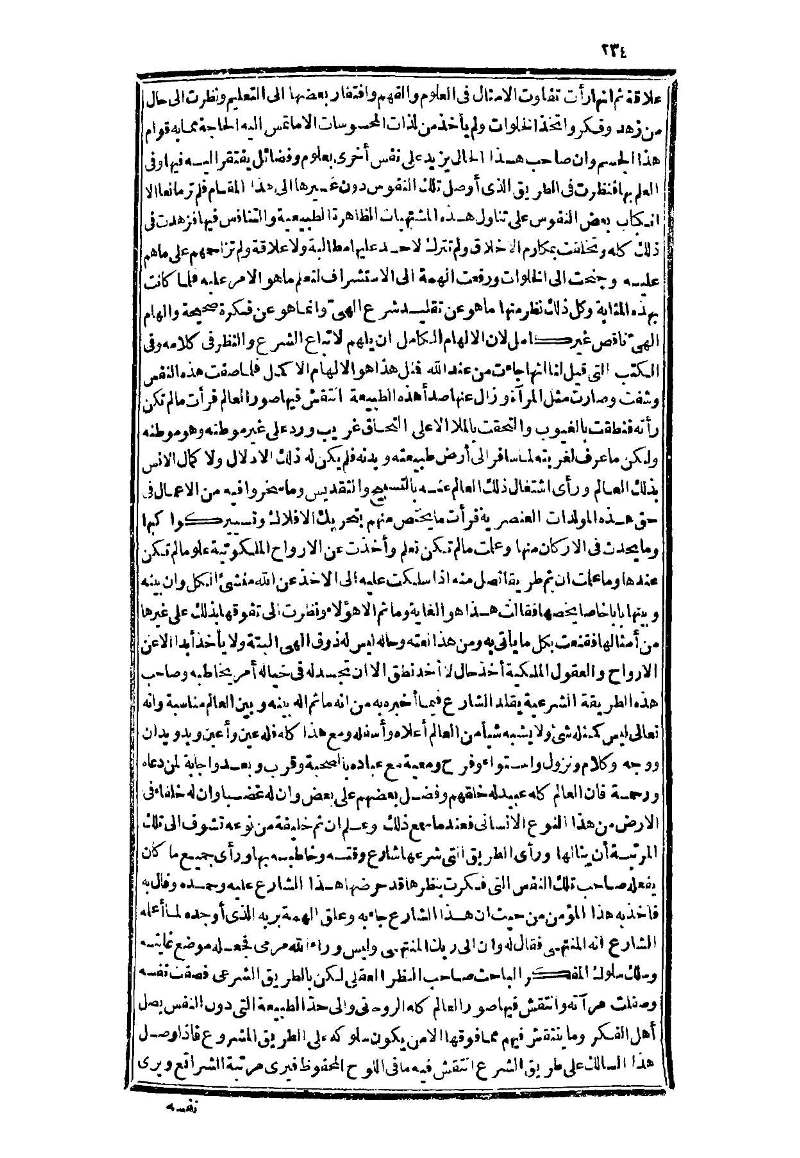 ٢٣٤
علاقة ثم انها رأت تفاوت الامثال فى العلوم والفهم وافتقار بعضها الى التعليم ونظرت الى حال
من زهد وفكر واتخذ الخلوات ولم يأخذ من لذات المحسوسات الا ماتمس اليه الحاجة مما به قوام
هذا الجسم وان صاحب هذا الحال يزيد على نفس أخرى بعلوم وفضائل يفتقر اليه فيها وفى
العلم بها فنظرت فى الطريق الذى أوصل تلك النفوس دون غيرها الى هذا المقام فلم تر مانعا الا
انكباب بعض النفوس على تناول هذه المشتهيات الظاهرة الطبيعية والتنافس فيها فزهدت فى
ذلك كله وتخلقت بمكارم الاخلاق ولم تترك لاحد عليها مطالبة ولا علاقة ولم تزاحمهم على ماهم
عليه وجنحت الى الخلوات ورفعت الهمة الى الاستشراف لتعلم ماهو الامر عليه فلما كانت
بهذه المثابة وكل ذلك نظر منها ماهو عن تقليد شرع الهى وانما هو عن فكرة صحيحة والهام
الهى ناقص غير كامل لان الالهام الكامل ان يلهم لاتباع الشرع والنظر فى كلامه وفى
الكتب التى قيل لنا انها جاءت من عند الله فمثل هذا هو الالهام الاكمل فلما صفت هذه النفس
وشفت وصارت مثل المرآة وزال عنها صدأ هذه الطبيعة انتقش فيها صور العالم فرأت مالم تكن
رأته فنطقت بالغيوب والتحقت بالملا الاعلى التحاق غريب ورد على غير موطنه وهو موطنه
ولكن ما عرف لغربته لما سافر الى أرض طبيعته وبدنه فلم يكن له ذلك الادلال ولا كمال الانس
بذلك العالم ورأى اشتغال ذلك العالم عنه بالتسبيح والتقديس وما سخروا فيه من الاعمال فى
حق هذه المولدات العنصرية فرأت ما يختص منهم بتحريك الافلاك وتسيير كواكبها
وما يحدث فى الاركان منها وعلمت مالم تكن تعلم وأخذت عن الارواح الملكوتية علوما لم تكن
عندها وما علمت ان ثم طريقا تصل منه اذا سلكت عليه الى الاخذ عن الله منشئ الكل وان بينه
وبينها بابا خاصا يخصها فقالت هذا هو الغاية وما ثم الا هؤلاء ونظرت الى تفوقها بذلك على غيرها
من أمثالها فقنعت بكل ما يأتى به ومن هذا نعته وحاله ليس له ذوق الهى البتة ولا يأخذ أبدا الا عن
الارواح والعقول الملكية أخذ حال لا أخذ نطق الا ان تجسد له فى خياله أمر يخاطبه وصاحب
هذه الطريقة الشرعية يقلد الشارع فيما أخبره به من انه ما ثم اله بينه وبين العالم مناسبة وانه
تعالى ليس كمثله شئ ولا يشبه شيأ من العالم أعلاه وأسفله ومع هذا كله فله عين وأعين ويد ويدان
ووجه وكلام ونزول واستواء وفرح ومعية مع عباده بالصحبة وقرب وبعد واجابة لمن دعاه
ورحمة فان العالم كله عبيد له خلقهم وفضل بعضهم على بعض وان له غضبا وان له خلفاء فى
الارض من هذا النوع الانسانى فعند ما سمع ذلك وعلم ان ثم خليفة من نوعه تشوف الى تلك
المرتبة أن ينالها ورأى الطريق التى شرعها شارع وقته وخاطبه بها ورأى جميع ما كان
يفعله صاحب تلك النفس التى فكرت بنظرها قد حرضها هذا الشارع عليه وحمده وقال به
فأخذ به هذا المؤمن من حيث ان هذا الشارع جاء به وعلق الهمة بربه الذى أوجده لما أعلمه
الشارع انه المنتهى فقال له وان الى ربك المنتهى وليس وراء الله مرمى فجعله موضع غايته
وسلك سلوك المفكر الباحث صاحب النظر العقلى لكن بالطريق الشرعى فصفت نفسه
وصقلت مرآته وانتقش فيها صور العالم كله الروحانى والى حد الطبيعة التى دون النفس يصل
أهل الفكر وما ينتقش فيهم مما فوقها الا من يكون سلوكه على الطريق المشروع فاذا وصل
هذا السالك على طريق الشرع انتقش فيه ما فى اللوح المحفوظ فيرى مرتبة الشرائع ويرى
نفسه